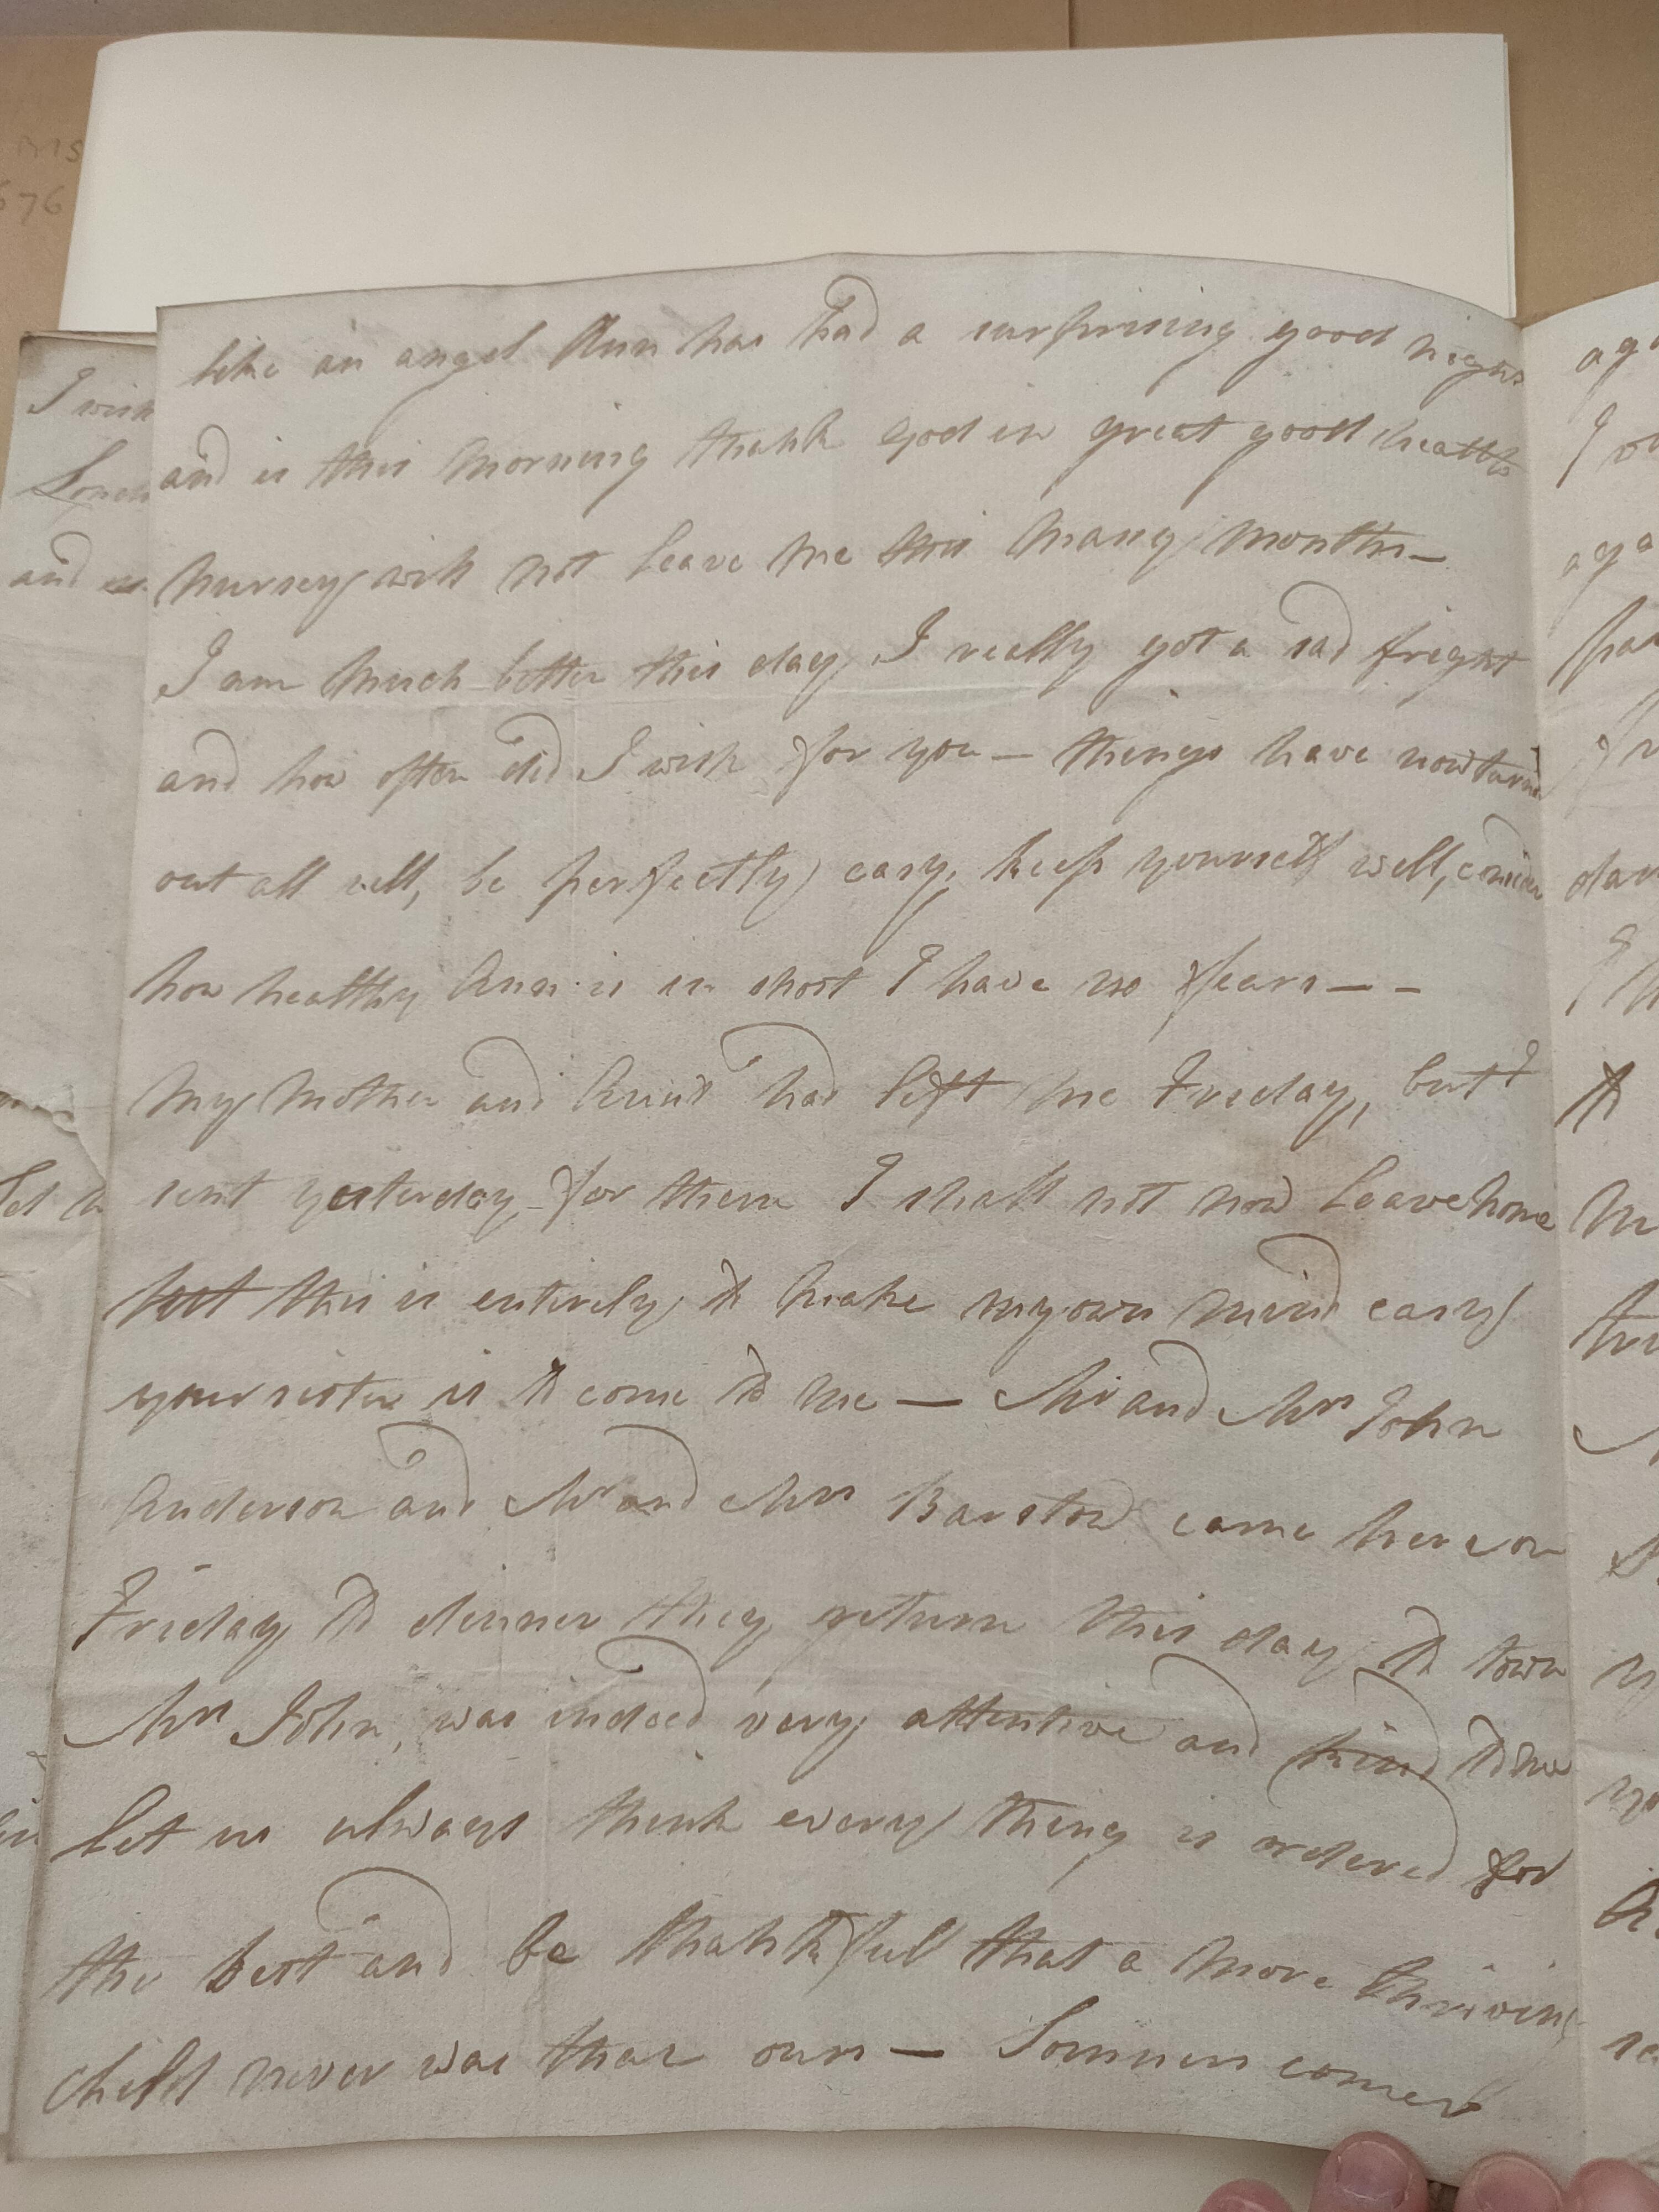 like an angel Ann has had a surprising good night
and is this morning thank god in great good health
nursey will not leave me this many months —
I am much better this day, I really got a sad fright
and how often did I wish for you — things have now turnd
out all well, be perfectly easy, keep yourself well, consider
how healthy Ann is in short I have no fears — –
my mother and had left me Friday, but I
sent yesterday for them I shall not now leave home
but this is entirely to make my own mind easy
your sister is to come to me — Mr and Mrs John
Anderson and Mr and Mrs Barstow came here on
Friday to dinner they return this day to town
Mrs John, was indeed very attentive and kind to me
let us always think every thing is ordered for
the best and be thankful that a more thriving
child never was than ours — comes
I wish
and
MS
676